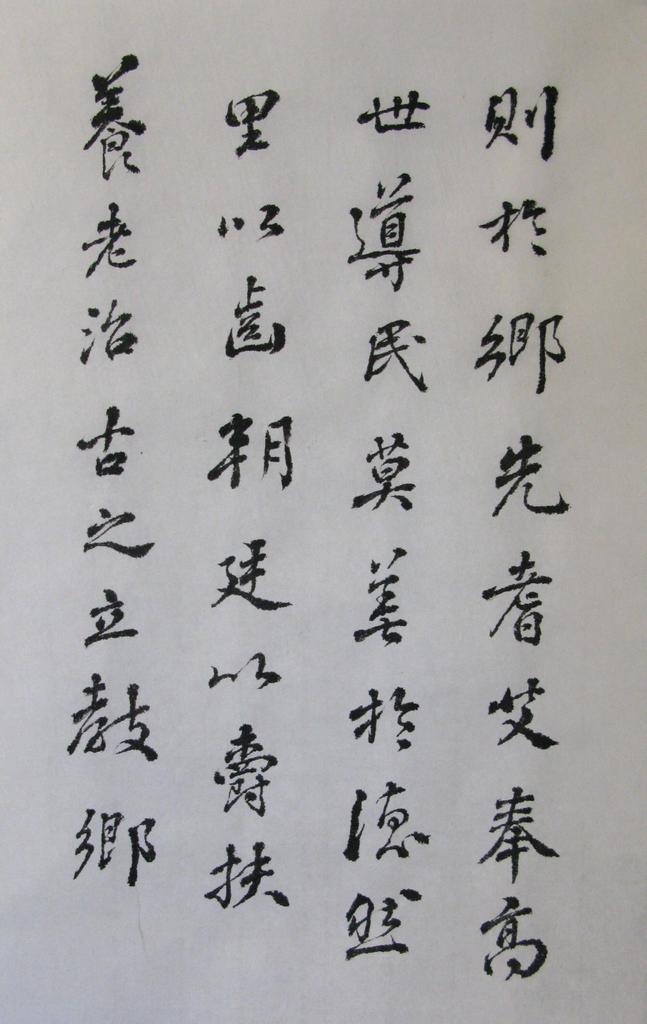 養老詔古之立教鄉
里以齒朝廷以爵扶
世導民莫善於德然
則於鄉先耆艾奉高